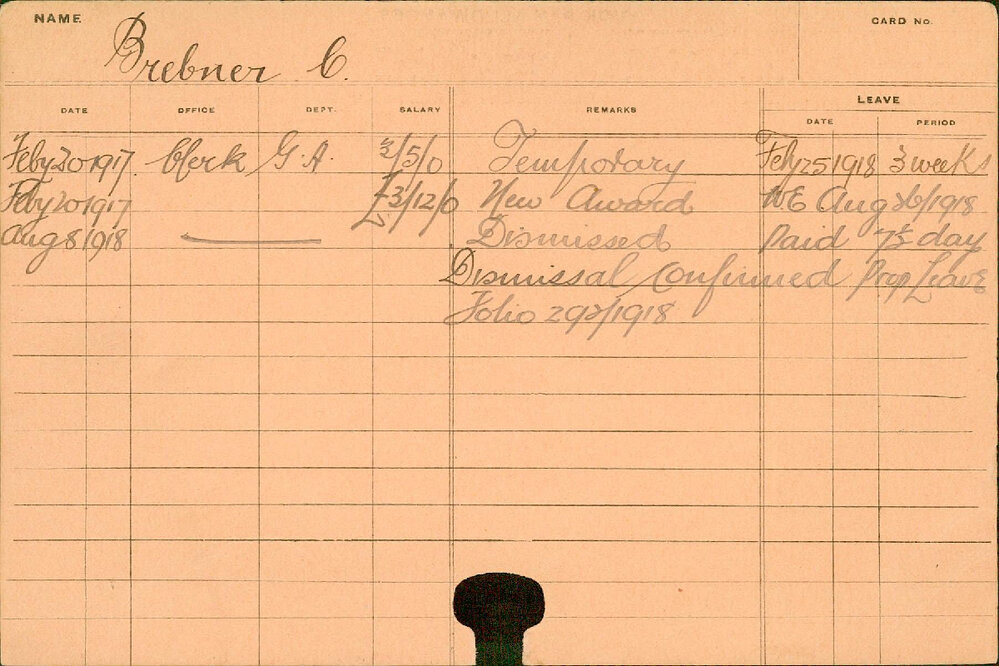 NAME Brebner C. CARD No.
DATE OFFICE DEPT. SALARY REMARKS LEAVE
DATE PERIOD
Feby 20 1917 Clerk G.A. 3/5/0 Temporary Feby 25 1918 3 weeks
Feby 20 1917 £3/12/0 New Award WE Aug 26/1918
Aug 8 1918 Dismissed Paid day
Dismissal Confirmed Prop Leave
Folio 292/1918